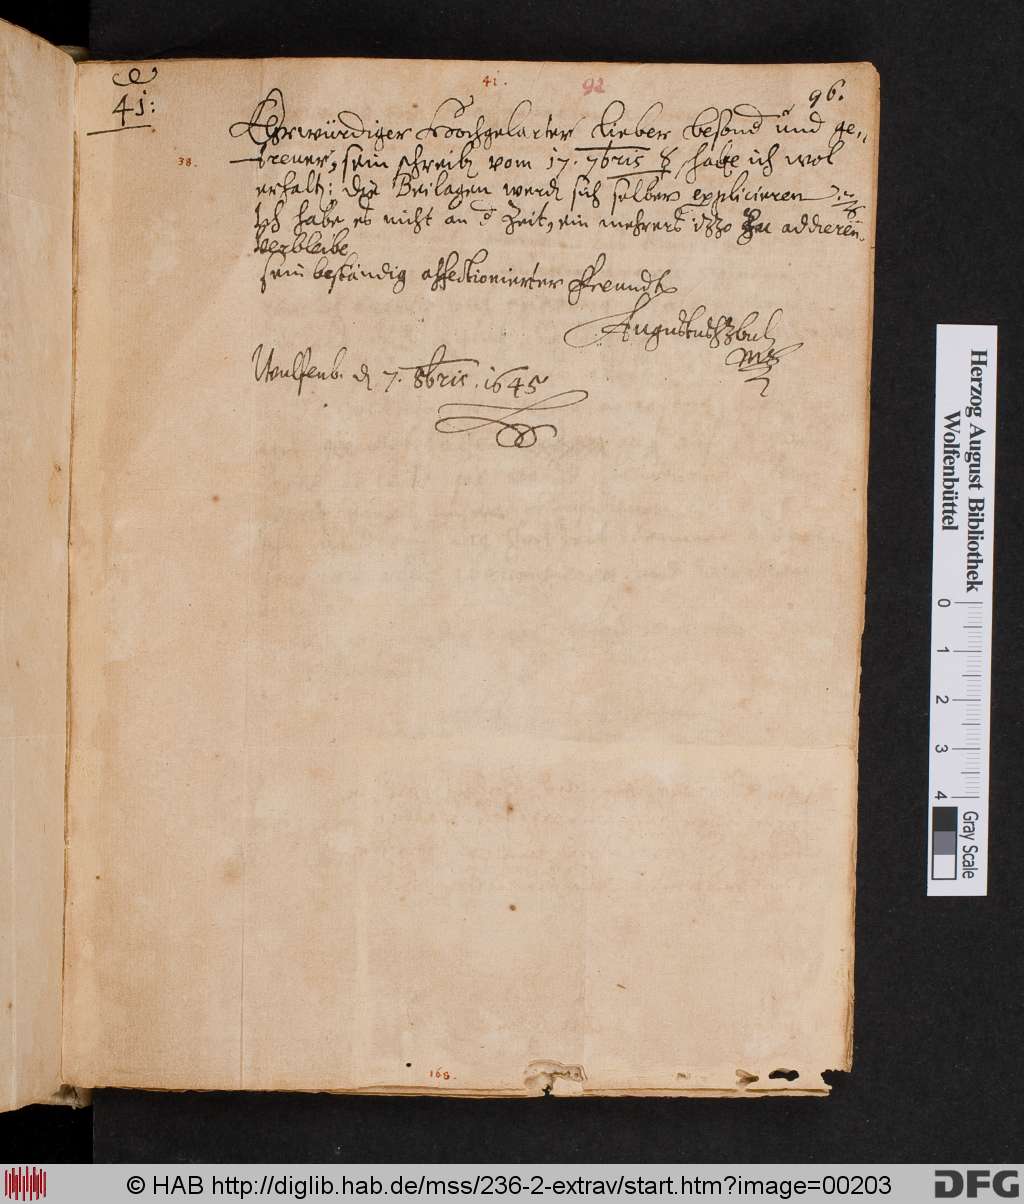 41:
41.
92
96.
Ehrwürdiger Hochgelarter lieber besond und ge„
38.
trewer, sein schreib vom 17. 7bris habe ich wol
erhalt: die Beilagen werd sich selber explicieren
Ich habe es nicht an d Zeit, ein mehrers izzo zu addieren.
Verbleibe
sein beständig affectionierter Freundt
Augustus HzBuL
Wulfenb. d 7. 8bris. 1645
168.
Herzog August Bibliothek
Wolfenbüttel
0 1 2 3 4
Gray Scale
© HAB http://diglib.hab.de/mss/236-2-extrav/start.htm?image=00203
DFG